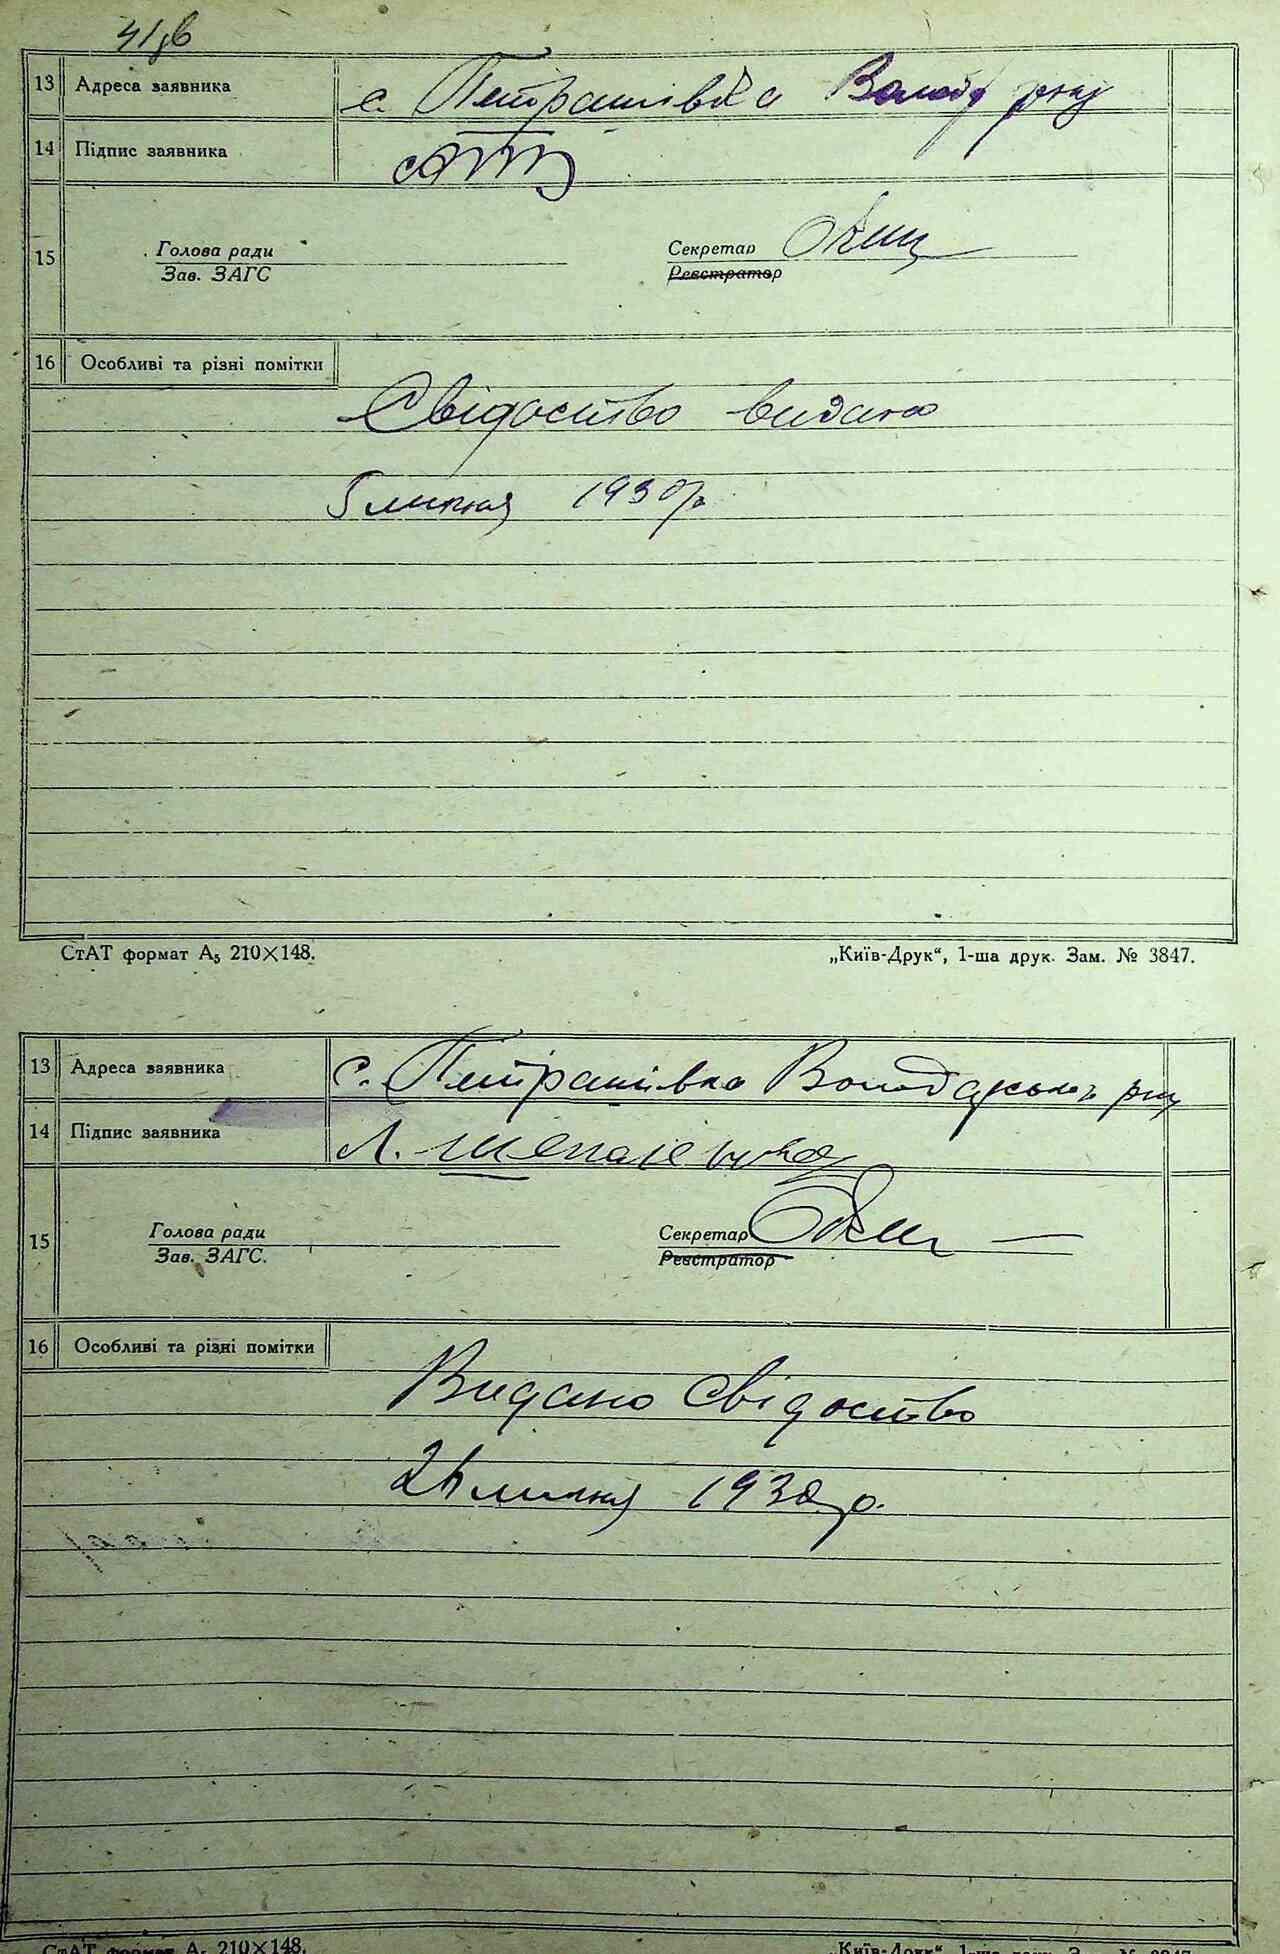 41зв
13 Адреса заявника с. Петрашівка Волод. р-ну
14 Підпис заявника
15 Голова ради Секретар
Зав. ЗАГС Реєстратор
16 Особливі та різні помітки
Свідоство видано
5 липня 1930 р.
СтАТ формат А5 210×148. „Київ-Друк“, 1-ша друк. Зам. № 3847.
13 Адреса заявника с. Петрашівка Володарського р-ну
14 Підпис заявника Л.
15 Голова ради Секретар
Зав. ЗАГС. Реєстратор
16 Особливі та різні помітки
Видано Свідоство
липня 1930 р.
СтАТ формат А5 210×148. „Київ-Друк“, 1-ша друк. Зам. № 3847.